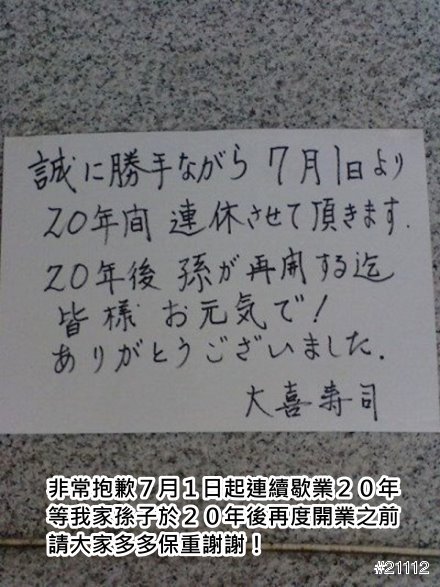 誠に勝手ながら 7月1日より
20年間 連休させて頂きます.
20年後 孫が再開する迄
皆様 お元気で!
ありがとうございました.
大喜寿司
非常抱歉7月1日起連續歇業20年
等我家孫子於20年後再度開業之前
請大家多多保重謝謝!
#21112